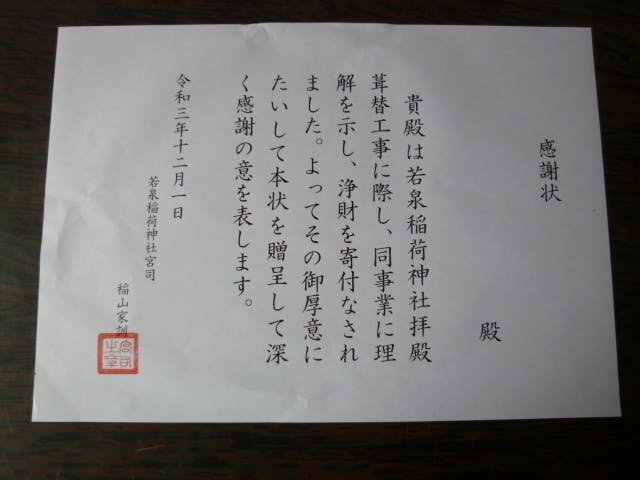 感謝状
殿
貴殿は若泉稲荷神社拝殿
葺替工事に際し、同事業に理
解を示し、浄財を寄付なされ
ました。よってその御厚意に
たいして本状を贈呈して深
く感謝の意を表します。
令和三年十二月一日
若泉稲荷神社宮司
稲山家訓
宮司
之章